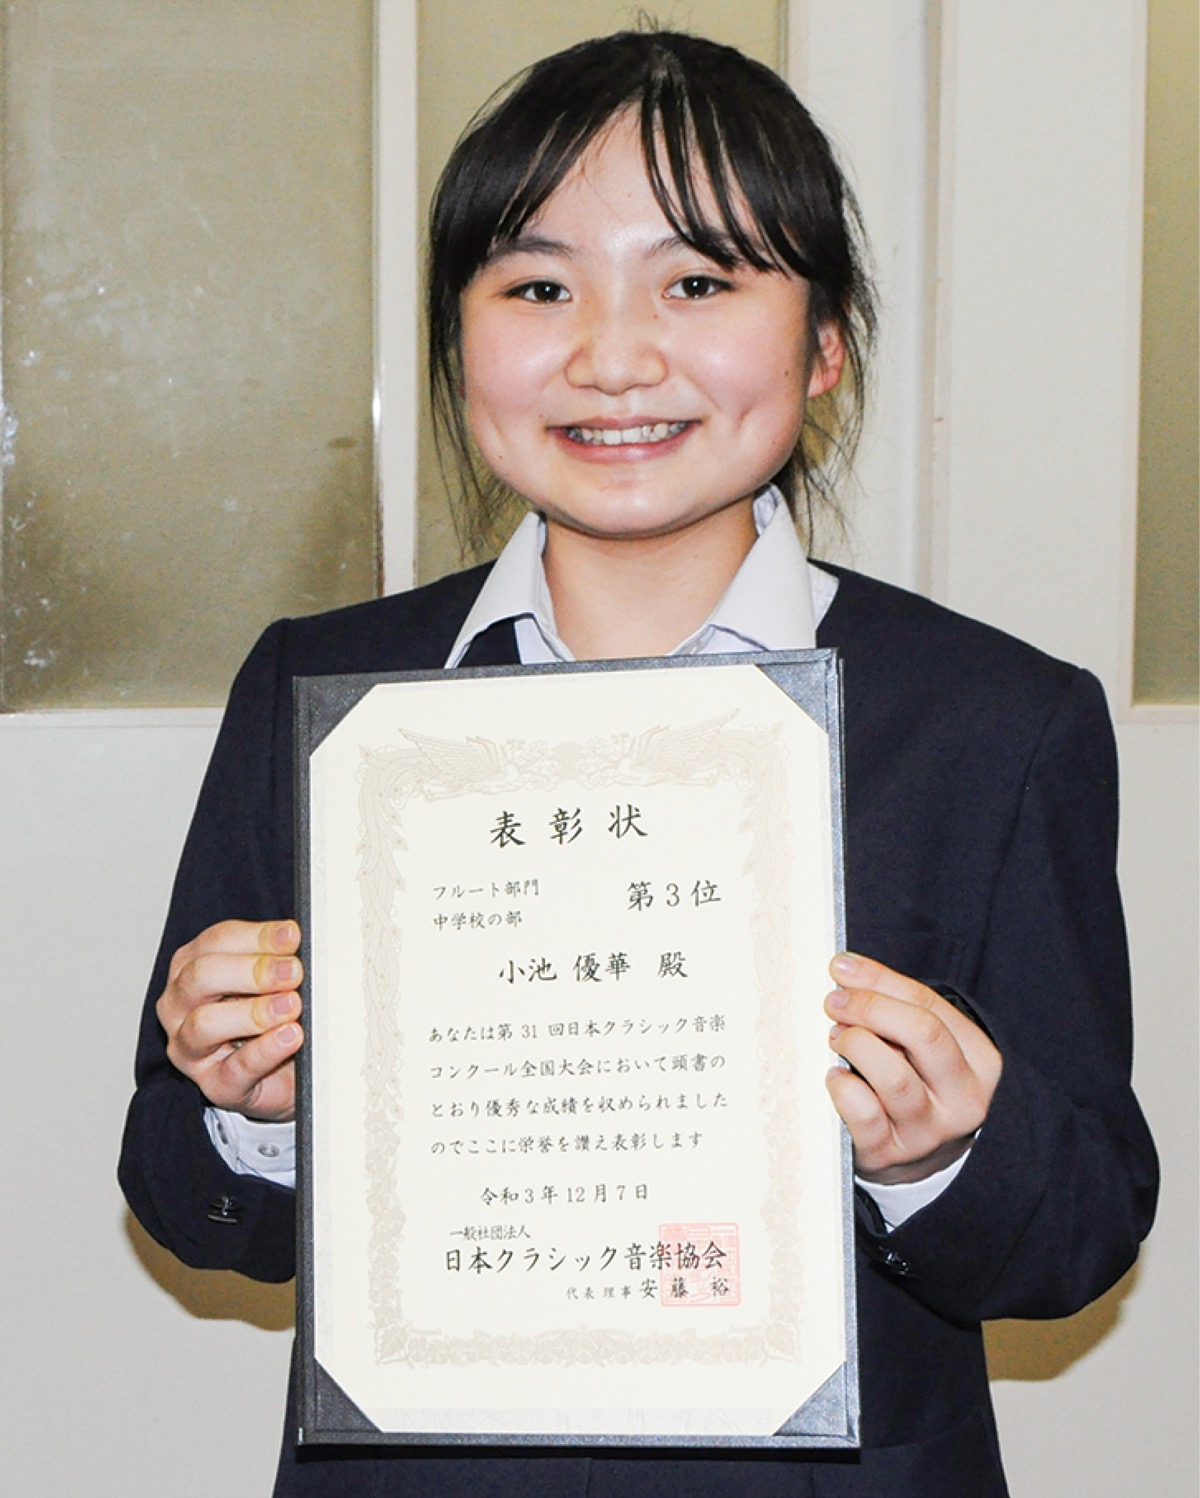 表彰状
フルート部門
中学校の部
第3位
小池 優華 殿
あなたは第 31 回日本クラシック音楽
コンクール全国大会において頭書の
とおり優秀な成績を収められました
のでここに栄誉を讃え表彰します
令和3年12月7日
一般社団法人
日本クラシック音楽協会
代表理事 安藤 裕